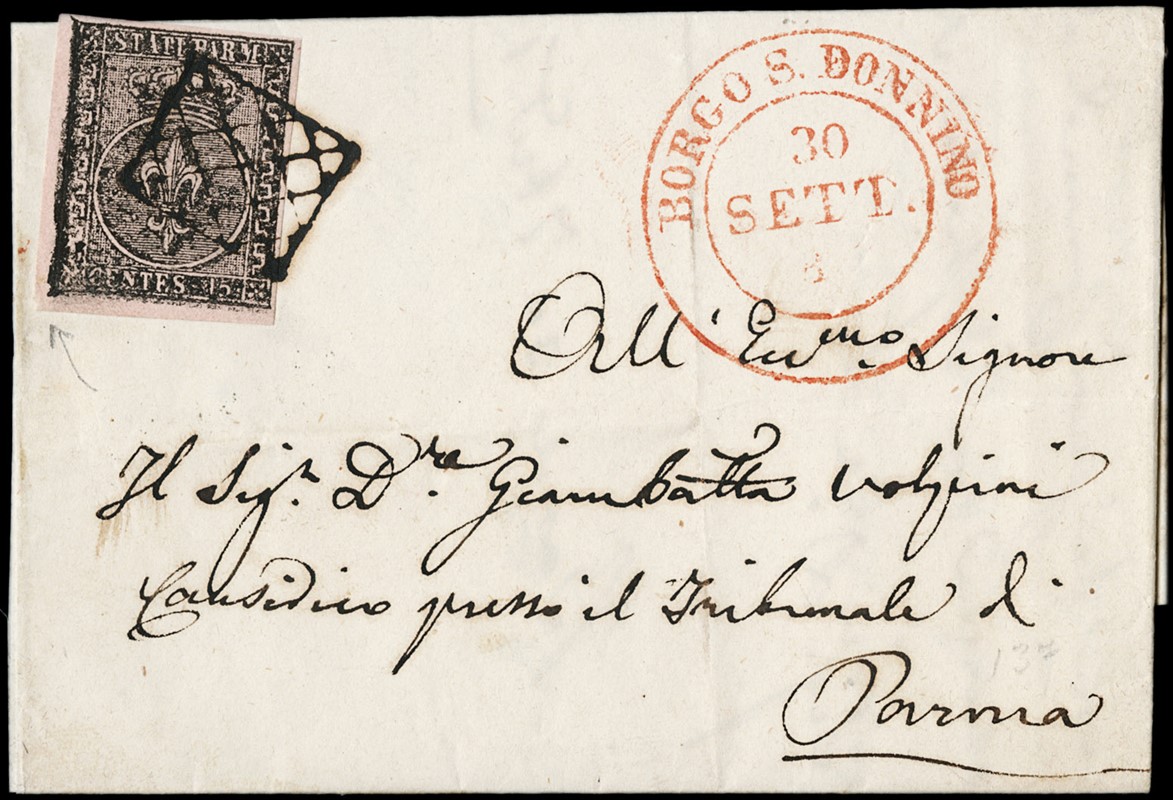 STATI PARM.
CENTES. 15
BORGO S. DONNINO
30
SETT.
All' Ecc.mo Signore
Il Sig.r D.re Giambatta Volpini
Causidico presso il Tribunale di
137
Parma